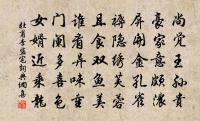 尚觉王孙贵
豪家意颇浓
屏开金孔雀
褥隐绣芙蓉
且食双鱼美
谁看异味重
门阑多喜色
女婿近乘龙
杜甫李监宅